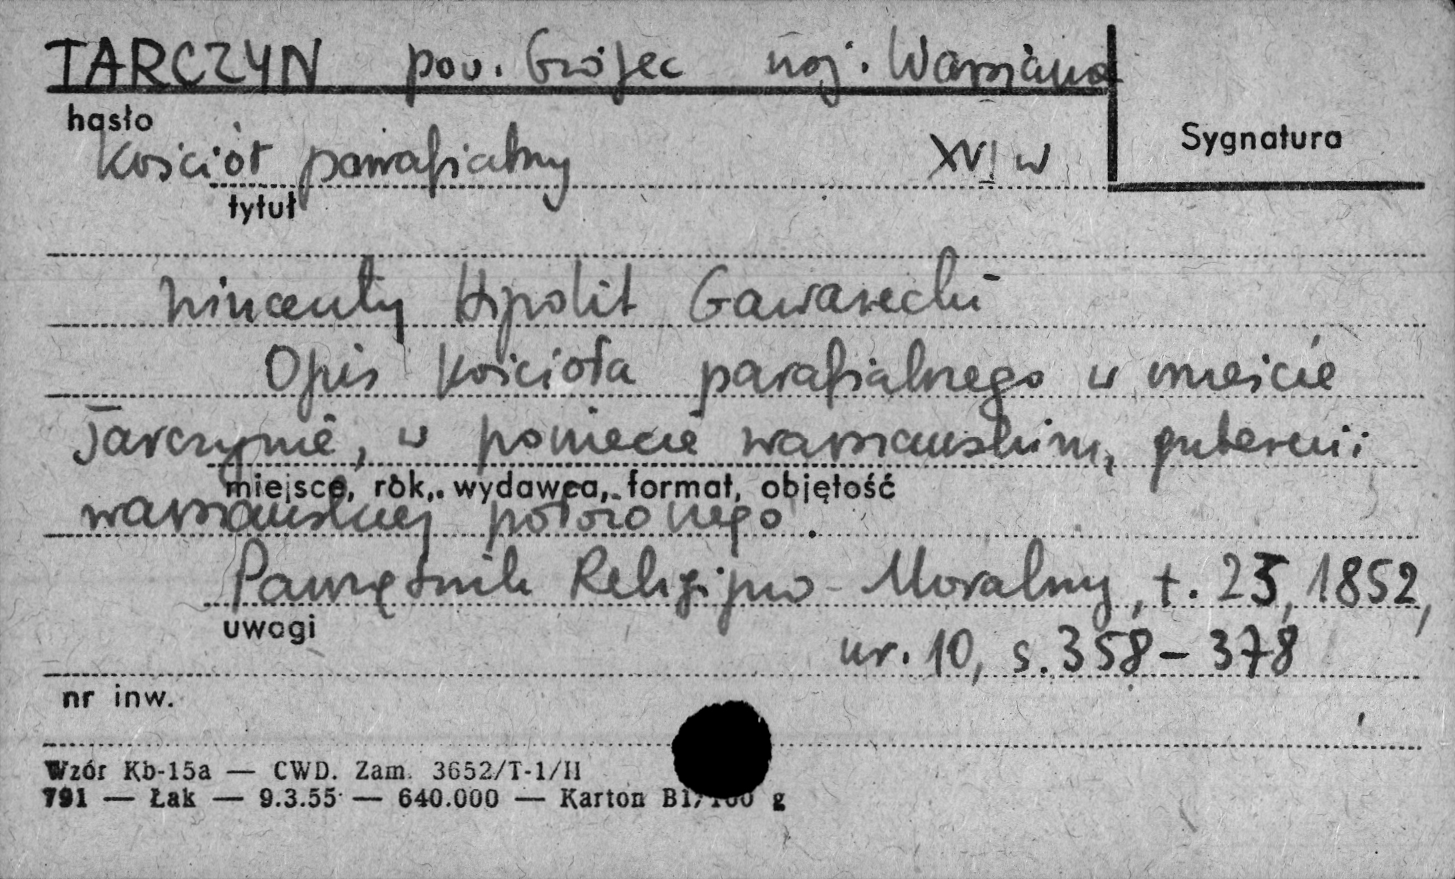 TARCZYN pow. Grójec woj. Warszawa
hasło
Sygnatura
Kościół parafialny XVI w
tytuł
Wincenty Hipolit Gawarecki
Opis kościoła parafialnego w mieście
Tarczynie, w powiecie warszawskim, gubernii
miejsce, rok, wydawca, format, objętość
warszawskiej położonego.
Pamiętnik Religijno-Moralny, t. 23, 1852,
uwagi
nr. 10, s. 358-378
nr inw.
Wzór Kb-15a — CWD. Zam. 3652/T-1/II
791 — Łak — 9.3.55 — 640.000 — Karton B1/100 g